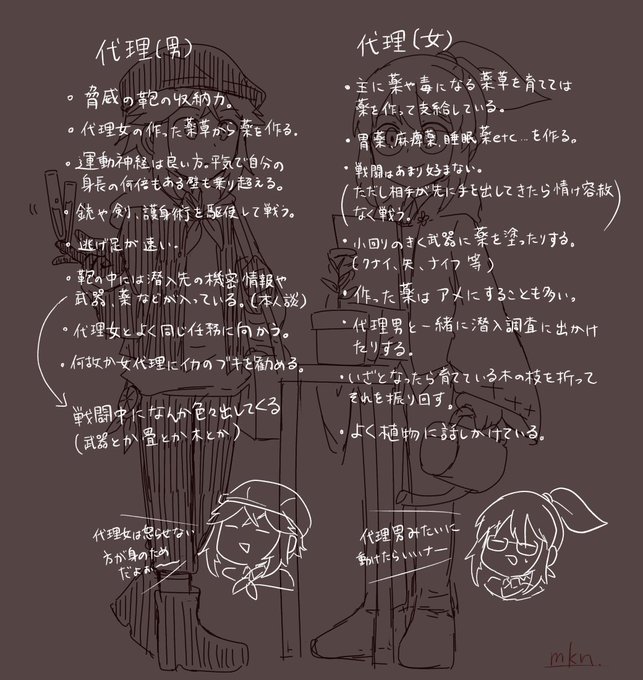 代理(男)
・脅威の鞄の収納力。
・代理女の作った薬草から薬を作る。
・運動神経は良い方。平気で自分の
身長の何倍もある壁も乗り超える。
・銃や剣、護身術を駆使して戦う。
・逃げ足が速い。
・鞄の中には潜入先の機密情報や
武器、薬などが入っている。(本人談)
・代理女とよく同じ任務に向かう。
・何故か女代理にイカのブキを勧める。
戦闘中になんか色々出してくる
(武器とか畳とか木とか)
代理女は怒らせない
方が身のため
だよぉ〜
代理(女)
・主に薬や毒になる薬草を育てては
薬を作って支給している。
・胃薬、麻痺薬、睡眠薬etc...を作る。
・戦闘はあまり好まない。
(ただし相手が先に手を出してきたら情け容赦
なく戦う。)
・小回りのきく武器に薬を塗ったりする。
(クナイ、矢、ナイフ等)
・作った薬はアメにすることも多い。
・代理男と一緒に潜入調査に出かけ
たりする。
・いざとなったら育てている木の枝を折って
それを振り回す。
・よく植物に話しかけている。
代理男みたいに
動けたらいいナー
mkn.